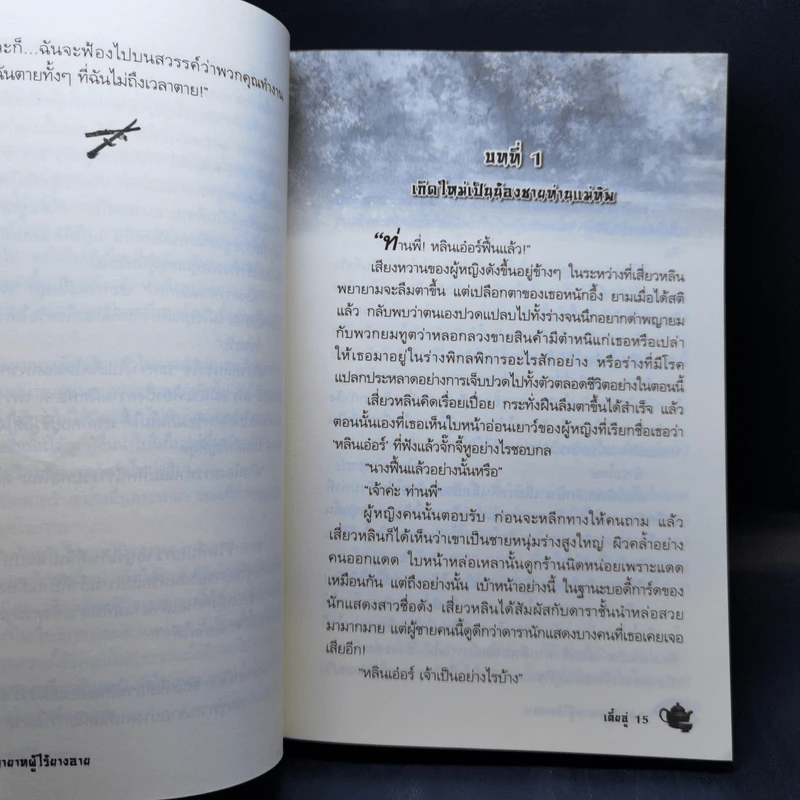 ะก็...ฉันจะฟ้องไปบนสวรรค์ว่าพวกคุณทำงาน
ฉันตายทั้งๆ ที่ฉันไม่ถึงเวลาตาย!"
บทที่ 1
เกิดใหม่เป็นน้องชายท่านแม่ทัพ
"ท่านพี่! หลินเอ๋อร์ฟื้นแล้ว!"
เสียงหวานของผู้หญิงดังขึ้นอยู่ข้างๆ ในระหว่างที่เสี่ยวหลิน
พยายามจะลืมตาขึ้น แต่เปลือกตาของเธอหนักอึ้ง ยามเมื่อได้สติ
แล้ว กลับพบว่าตนเองปวดแปลบไปทั้งร่างจนนึกอยากด่าพญายม
กับพวกยมทูตว่าหลอกลวงขายสินค้ามีตำหนิแก่เธอหรือเปล่า
ให้เธอมาอยู่ในร่างพิกลพิการอะไรสักอย่าง หรือร่างที่มีโรค
แปลกประหลาดอย่างการเจ็บปวดไปทั้งตัวตลอดชีวิตอย่างในตอนนี้
เสี่ยวหลินคิดเรื่อยเปื่อย กระทั่งฝืนลืมตาขึ้นได้สำเร็จ แล้ว
ตอนนั้นเองที่เธอเห็นใบหน้าอ่อนเยาว์ของผู้หญิงที่เรียกชื่อเธอว่า
'หลินเอ๋อร์' ที่ฟังแล้วจั๊กจี้หูอย่างไรชอบกล
"นางฟื้นแล้วอย่างนั้นหรือ"
"เจ้าค่ะ ท่านพี่"
ผู้หญิงคนนั้นตอบรับ ก่อนจะหลีกทางให้คนถาม แล้ว
เสี่ยวหลินก็ได้เห็นว่าเขาเป็นชายหนุ่มร่างสูงใหญ่ ผิวคล้ำอย่าง
คนออกแดด ใบหน้าหล่อเหลานั้นดูกร้านนิดหน่อยเพราะแดด
เหมือนกัน แต่ถึงอย่างนั้น เบ้าหน้าอย่างนี้ ในฐานะบอดี้การ์ดของ
นักแสดงสาวชื่อดัง เสี่ยวหลินได้สัมผัสกับดาราชั้นนำหล่อสวย
มามากมาย แต่ผู้ชายคนนี้ดูดีกว่าดารานักแสดงบางคนที่เธอเคยเจอ
เสียอีก!
"หลินเอ๋อร์ เจ้าเป็นอย่างไรบ้าง"
เสี้ยวลู่ 15
ายาหผู้ไร้ยางอาย